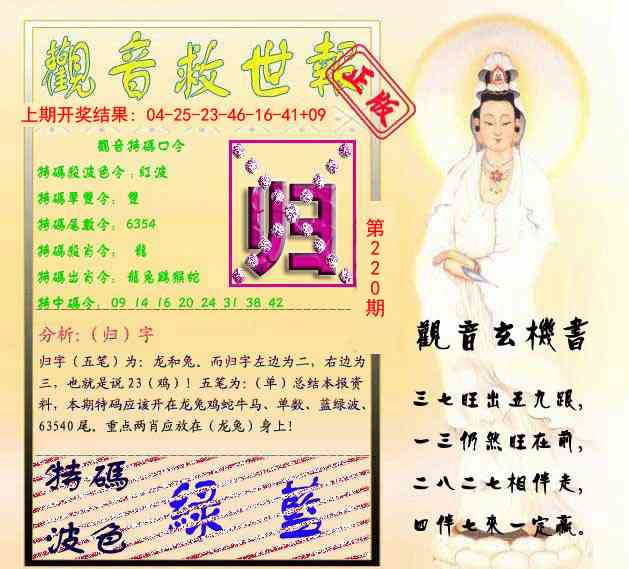 觀音救世報
正版
上期开奖结果：04-25-23-46-16-41+09
觀音特碼口令
特碼段波色令：紅波
特碼單雙令： 雙
特碼尾數令： 6354
特碼段肖令： 龍
特碼出肖令： 龍兔鷄猴蛇
特中碼令： 09 14 16 20 24 31 38 42
归
第220期
分析:（归）字
归字（五笔）为：龙和兔。而归字左边为二，右边为
三，也就是说 23（鸡）！五笔为：（单）总结本报资
料，本期特码应该开在龙兔鸡蛇牛马、单数、蓝绿波、
63540 尾。重点两肖应放在（龙兔）身上！
特碼
波色
綠 藍
觀音玄機書
三七旺出五九跟，
一三仍然旺在前，
二八二七相伴走，
四伴七來一定贏。